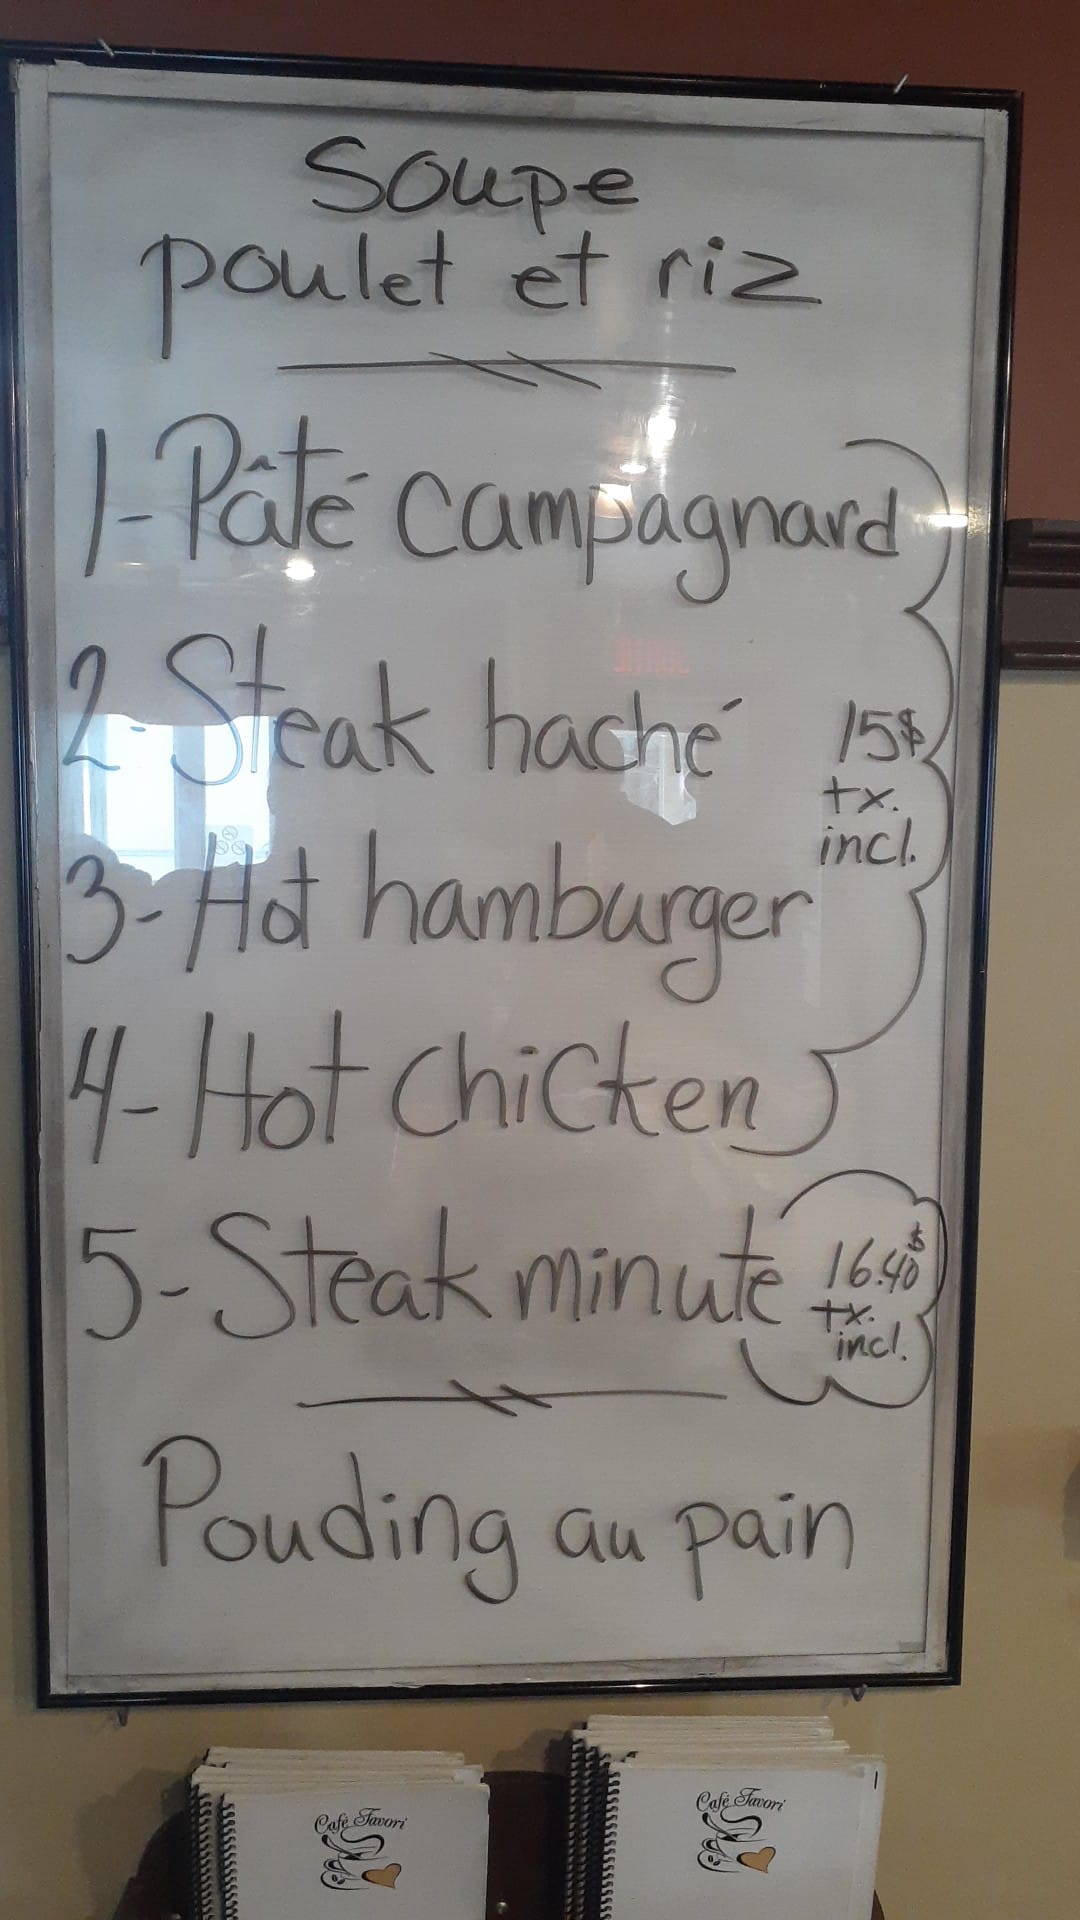 Soupe
poulet et riz
1- Pâté campagnard
2- Steak haché
15$
tx.
incl.
3- Hot hamburger
4- Hot chicken
5- Steak minute
16.40$
tx.
incl.
Pouding au pain
Café Favori
Café Favori